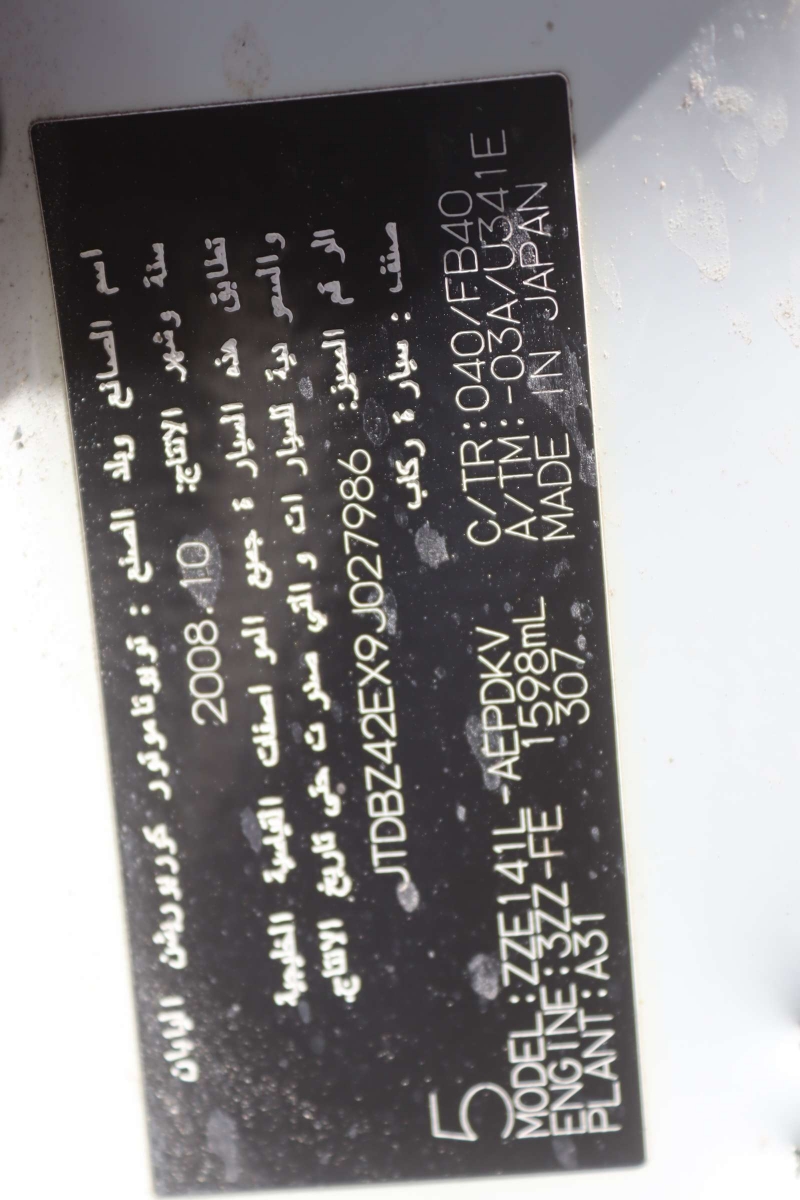 اسم الصانع وبلد الصنع : تويوتا موتور كوربوريشن اليابان
سنة وشهر الانتاج: 2008. 10
تطابق هذه السيارة جميع المواصفات القياسية الخليجية
والسعودية للسيارات والتي صدرت حتى تاريخ الانتاج.
الرقم المميز: JTDBZ42EX9J027986
صنف : سيارة ركاب
5
MODEL:ZZE141L-AEPDKV C/TR:040/FB40
ENGINE:3ZZ-FE 1598mL A/TM:-03A/U341E
PLANT:A31 307 MADE IN JAPAN